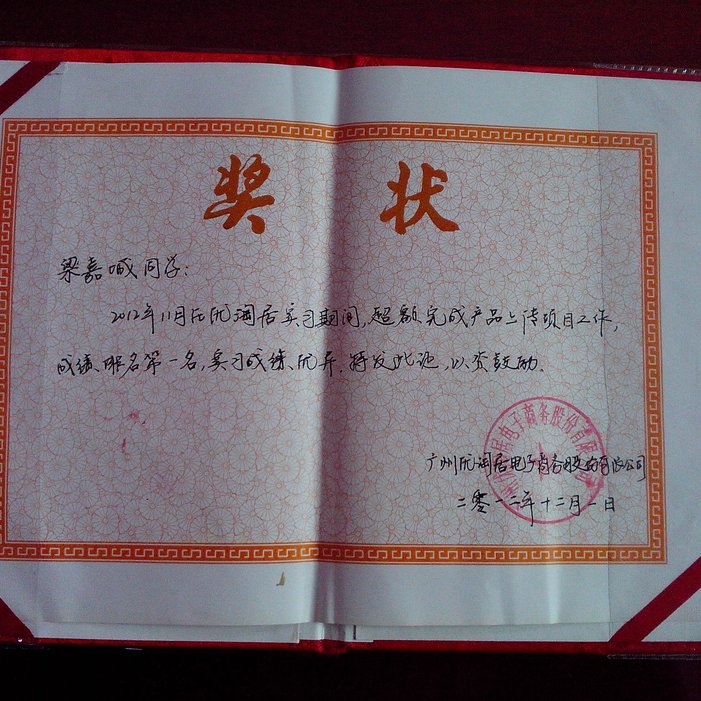 奖 状
梁嘉城同学:
2012年11月在优淘居实习期间,超额完成产品上传项目工作,
成绩排名第一名,实习成绩优异.特发此证,以资鼓励.
居电子商务股份有限
广州优淘居电子商务股份有限公司
二零一二年十二月一日